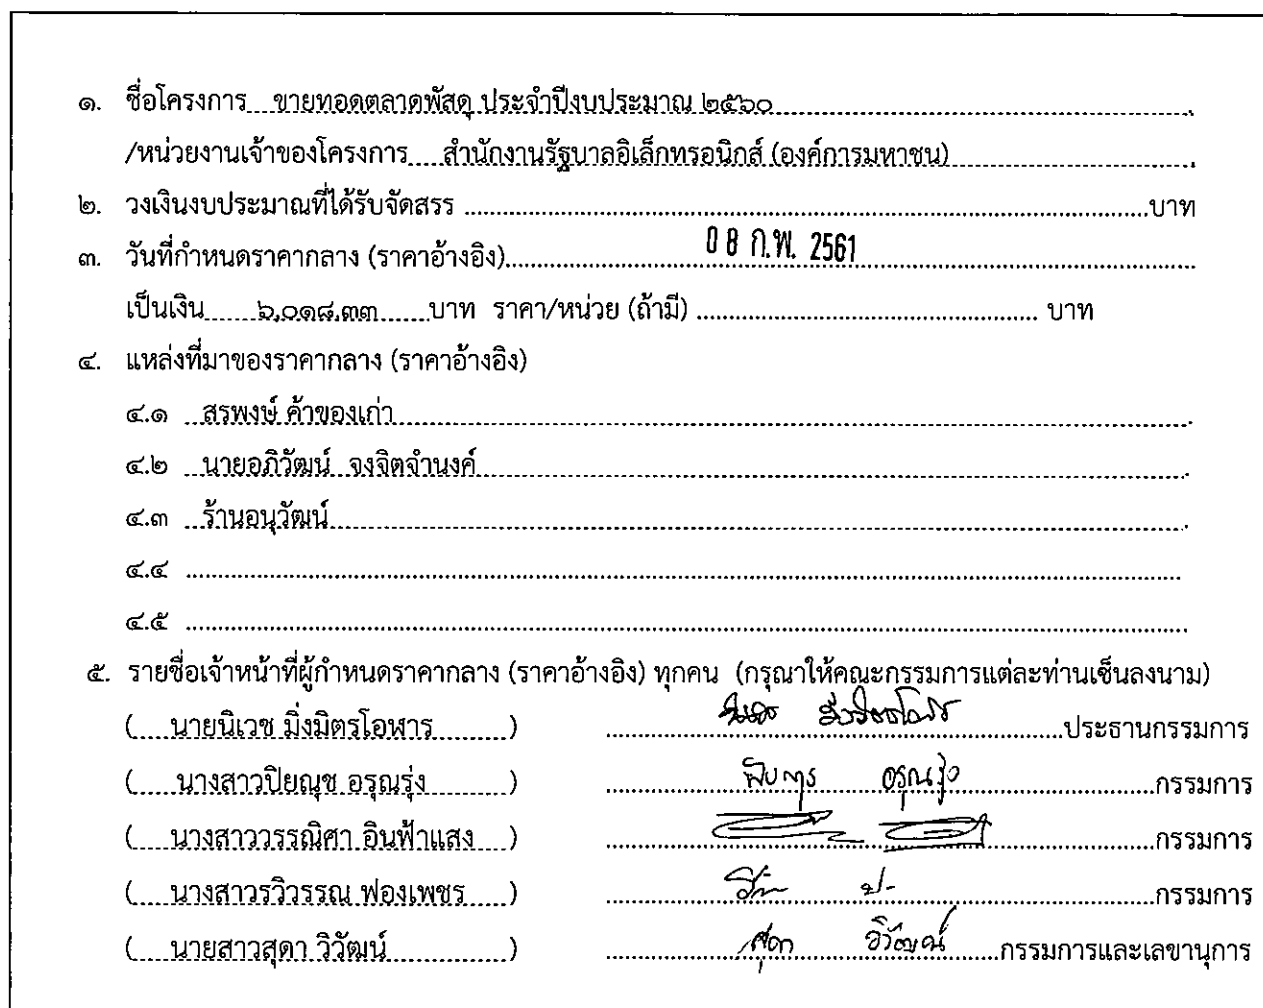 ๑. ชื่อโครงการ ขายทอดตลาดพัสดุ ประจำปีงบประมาณ ๒๕๖๐
/หน่วยงานเจ้าของโครงการ สำนักงานรัฐบาลอิเล็กทรอนิกส์ (องค์การมหาชน)
๒. วงเงินงบประมาณที่ได้รับจัดสรร บาท
๓. วันที่กำหนดราคากลาง (ราคาอ้างอิง) 08 ก.พ. 2561
เป็นเงิน ๖,๐๑๘.๓๓ บาท ราคา/หน่วย (ถ้ามี) บาท
๔. แหล่งที่มาของราคากลาง (ราคาอ้างอิง)
๔.๑ สรพงษ์ ค้าของเก่า
๔.๒ นายอภิวัฒน์ จงจิตจำนงค์
๔.๓ ร้านอนุวัฒน์
๔.๔
๔.๕
๕. รายชื่อเจ้าหน้าที่ผู้กำหนดราคากลาง (ราคาอ้างอิง) ทุกคน (กรุณาให้คณะกรรมการแต่ละท่านเซ็นลงนาม)
( นายนิเวช มิ่งมิตรโอฬาร ) ประธานกรรมการ
( นางสาวปิยณุช อรุณรุ่ง ) อรุณรุ่ง กรรมการ
( นางสาววรรณิศา อินฟ้าแสง ) กรรมการ
( นางสาวรวิวรรณ ฟองเพชร ) กรรมการ
( นายสาวสุดา วิวัฒน์ ) สุดา วิวัฒน์ กรรมการและเลขานุการ